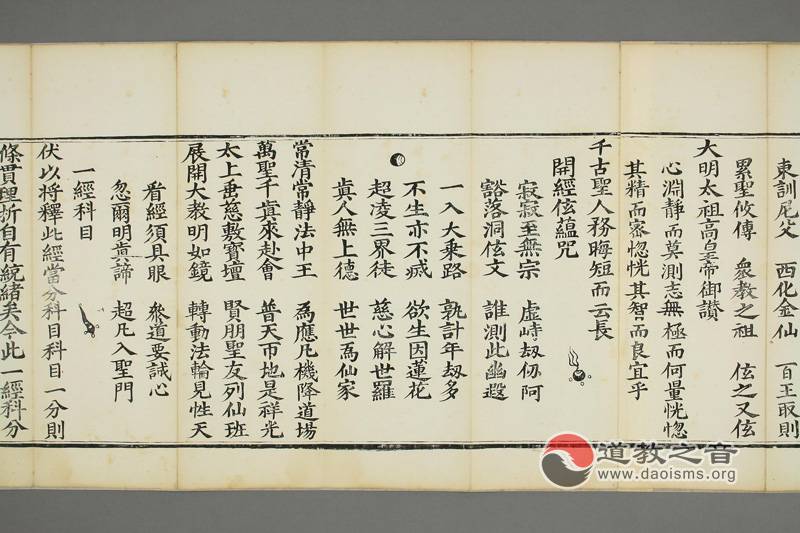 東訓尼父　西化金仙　百王取則
累聖攸傳　衆教之祖　伭之又伭
大明太祖高皇帝御讃
心淵静而莫測志無極而何量恍惚
其精而密惚恍其智而良宜乎
千古聖人務晦短而云長
開經伭蘊咒
寂寂至無宗　虛峙刼仞阿
豁落洞伭文　誰測此幽遐
一入大乗路　孰計年刼多
不生亦不滅　欲生因蓮花
超凌三界徒　慈心解世羅
眞人無上德　世世為仙家
常清常静法中王　為應凡機降道場
萬聖千眞來赴會　普天帀地是祥光
太上垂慈敷寶壇　賢朋聖友列仙班
展開大教明如鏡　轉動法輪見性天
看經須具眼　叅道要誠心
忽爾明眞諦　超凡入聖門
一經科目
伏以将釋此經當分科目科目一分則
條貫理析自有統緒矣今此一經科分
道教之音
www.daoisms.org